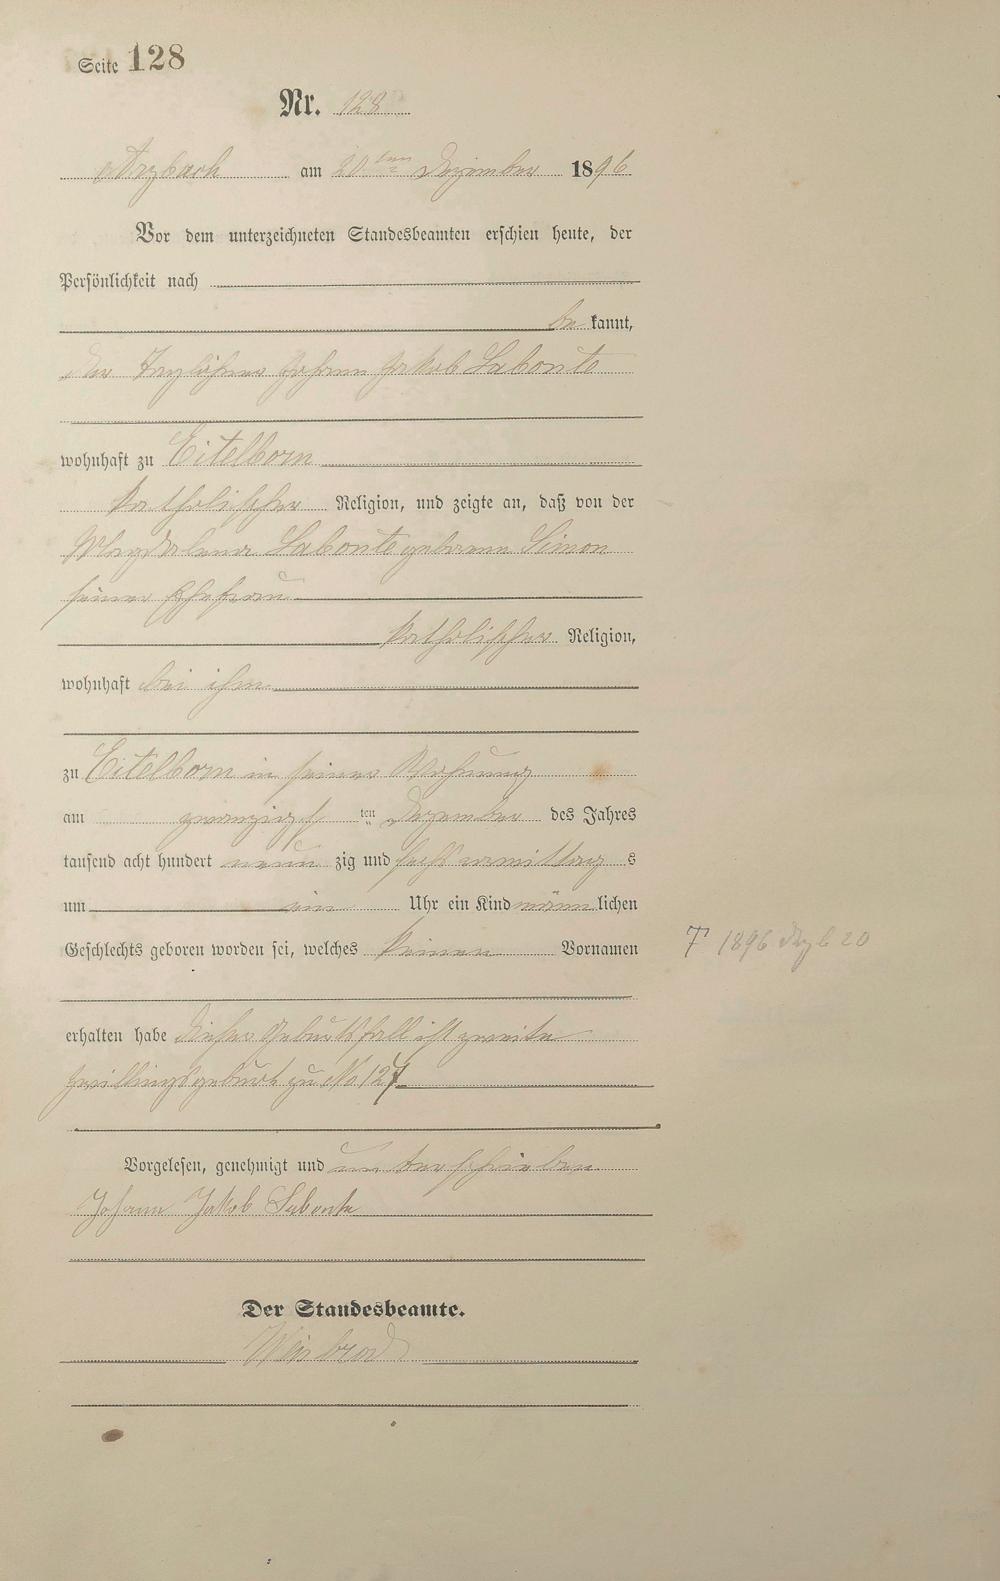 Seite 128
Nr. 128
Arzbach am 20ten Dezember 1896
Vor dem unterzeichneten Standesbeamten erschien heute, der
Persönlichkeit nach
be kannt,
der Taglöhner Johann Jakob Labonte
wohnhaft zu Eitelborn
katholischer Religion, und zeigte an, daß von der
Magdalena Labonte geborene Simon
seiner Ehefrau
katholischer Religion,
wohnhaft bei ihm
zu Eitelborn in seiner Wohnung
am zwanzigst ten Dezember des Jahres
tausend acht hundert neun zig und sechs vormittag s
um ein Uhr ein Kind männ lichen
Geschlechts geboren worden sei, welches keinen Vornamen
† 1896 Dezb 20
erhalten habe dieser Geburtsfall ist zweite
Zwillingsgeburt zu No 127
Vorgelesen, genehmigt und unterschrieben
Johann Jakob Labonte
Der Standesbeamte.
Weisbrod